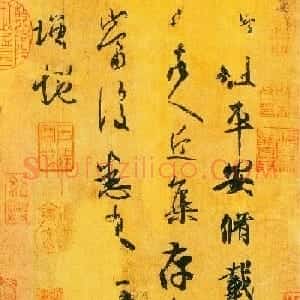 此粗平安脩載
諸人近集存
當復悉來
增慨
Shufaziliao.com